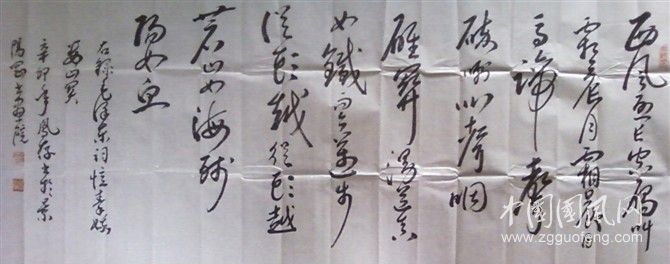 西風烈长空雁叫
霜晨月霜晨月
马蹄声
碎喇叭声咽
雄關漫道真
如鐵而今迈步
从头越从头越
苍山如海残
阳如血
右録毛泽东词忆秦娥
娄山関
辛卯年 书於景
阳 书画院
中国国风网
www.zgguofeng.com